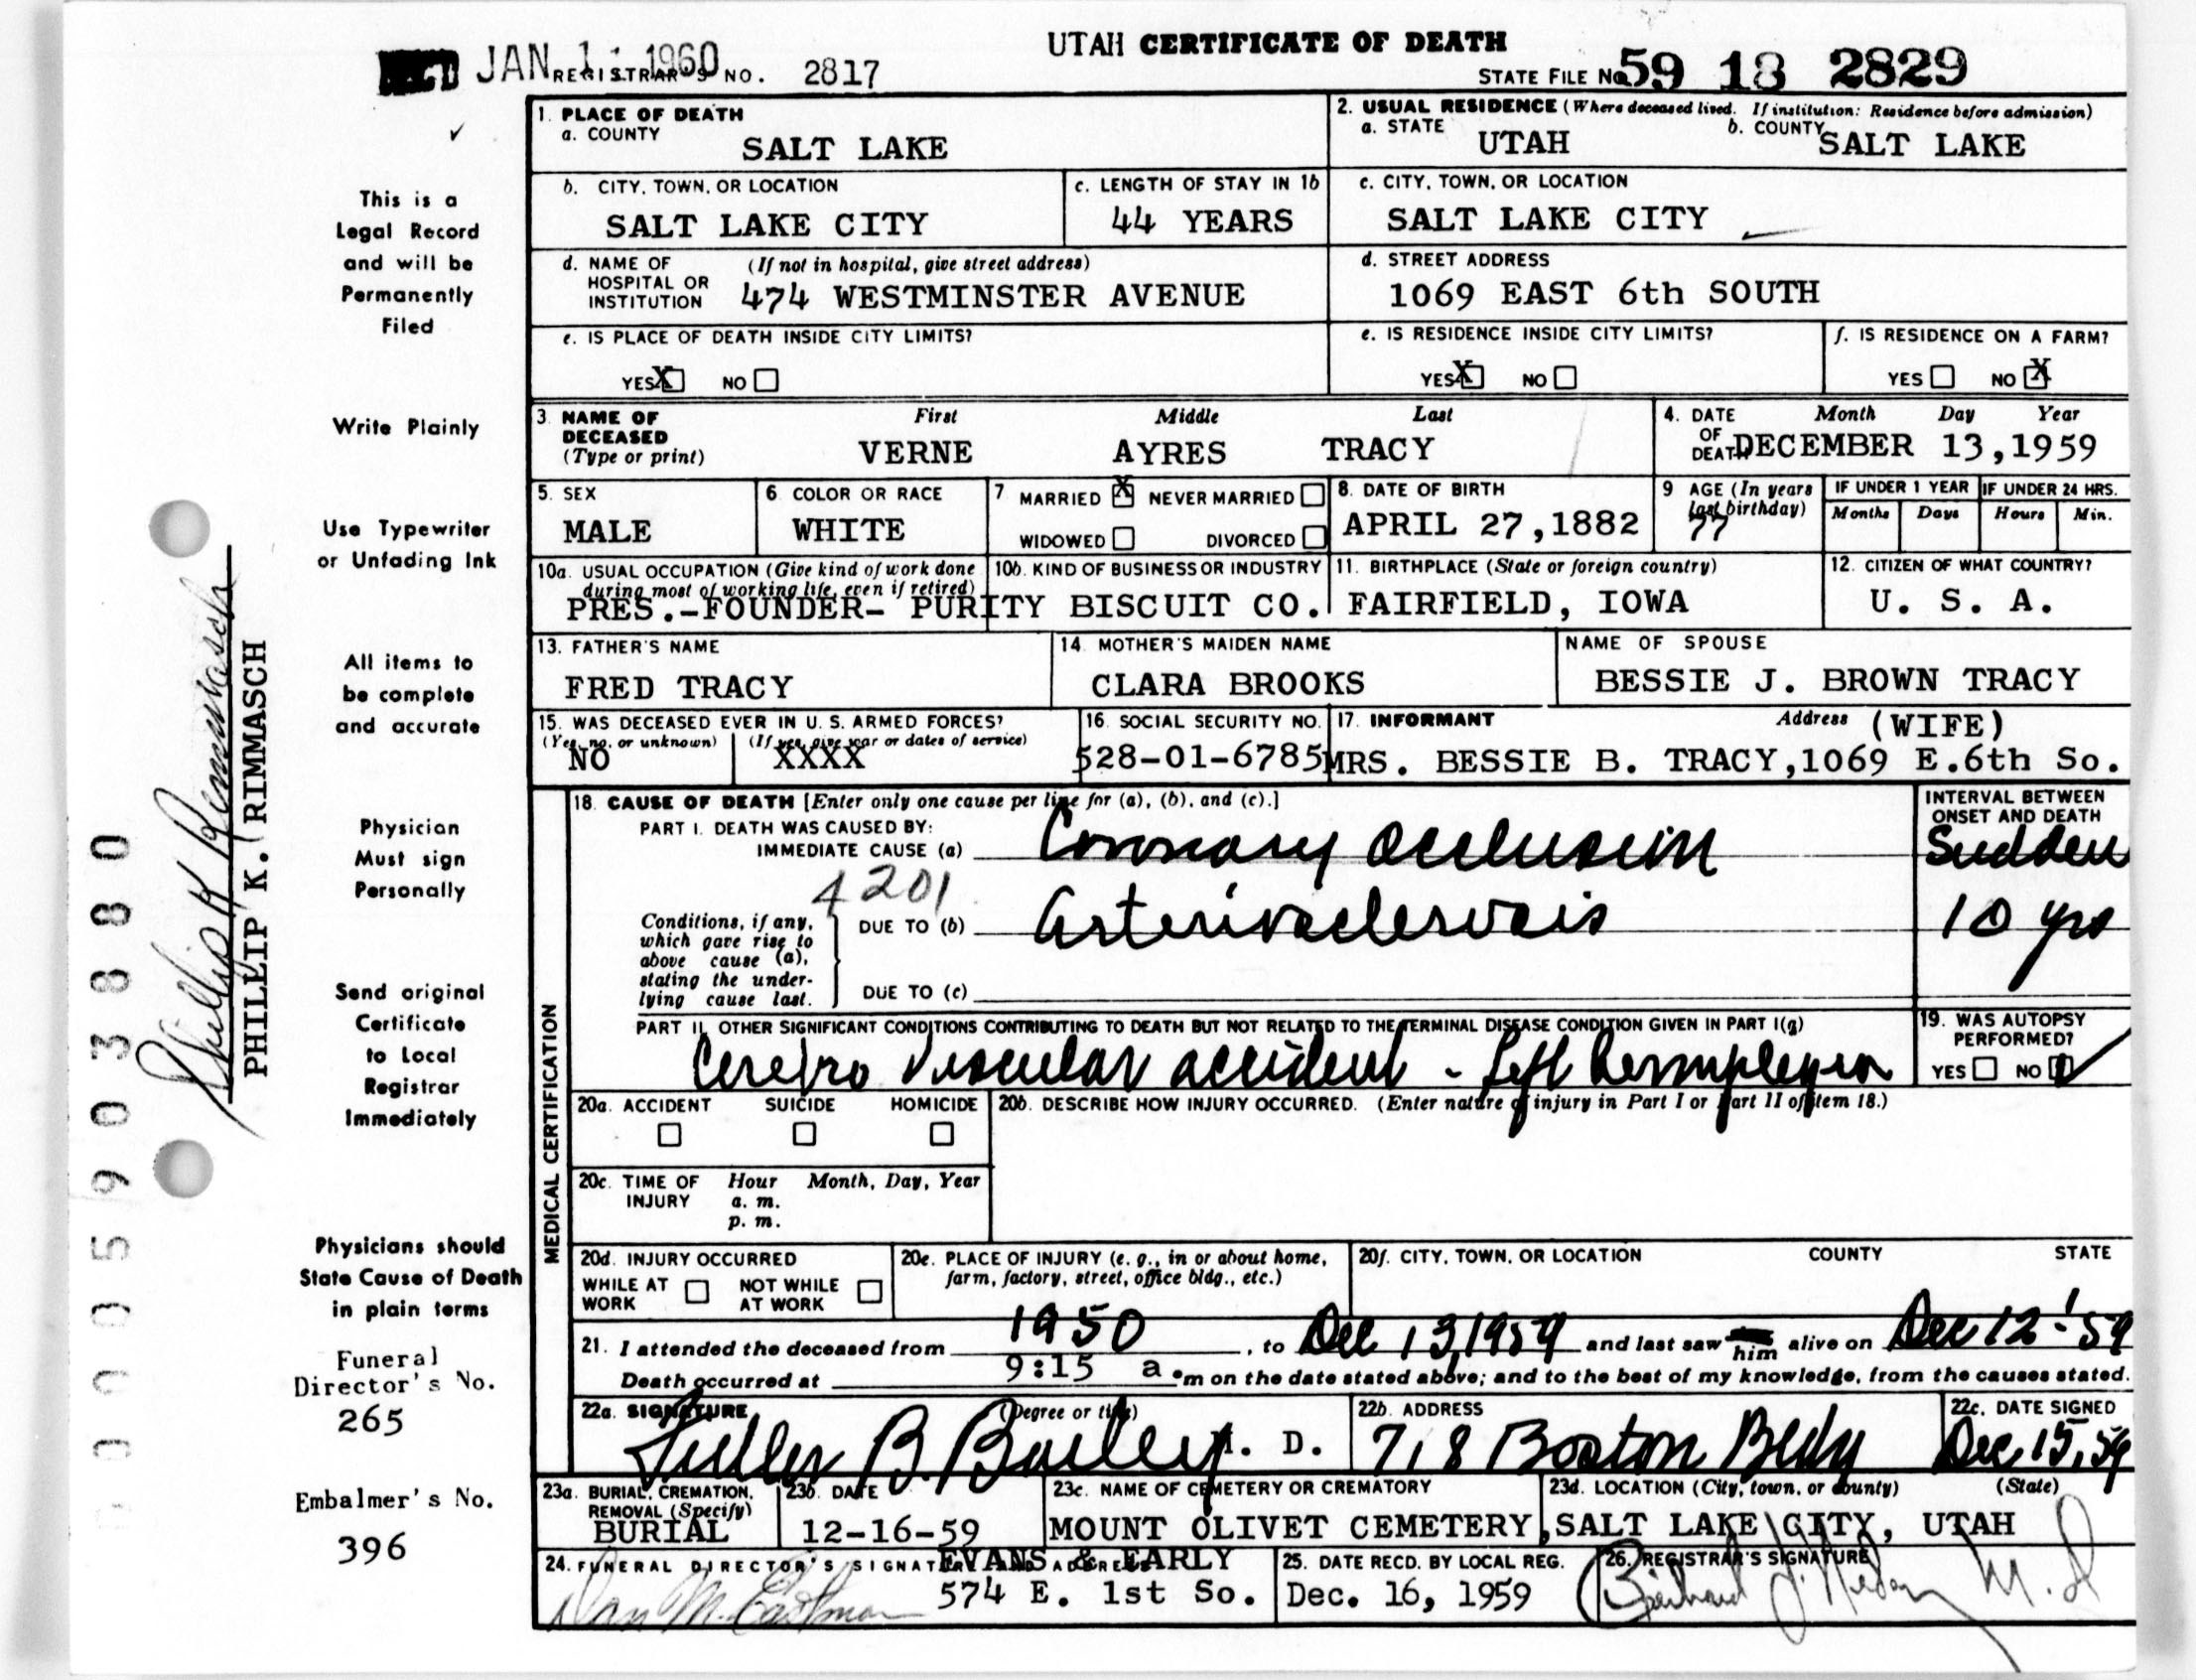 UTAH CERTIFICATE OF DEATH
REC'D JAN 11 1960 REGISTRAR'S NO. 2817
STATE FILE No. 59 18 2829
1. PLACE OF DEATH
a. COUNTY
SALT LAKE
2. USUAL RESIDENCE (Where deceased lived. If institution: Residence before admission)
a. STATE UTAH b. COUNTY SALT LAKE
b. CITY, TOWN, OR LOCATION
SALT LAKE CITY
c. LENGTH OF STAY IN 1b
44 YEARS
c. CITY, TOWN, OR LOCATION
SALT LAKE CITY
d. NAME OF HOSPITAL OR INSTITUTION (If not in hospital, give street address)
474 WESTMINSTER AVENUE
d. STREET ADDRESS
1069 EAST 6th SOUTH
e. IS PLACE OF DEATH INSIDE CITY LIMITS?
YES X NO
e. IS RESIDENCE INSIDE CITY LIMITS?
YES X NO
f. IS RESIDENCE ON A FARM?
YES NO X
3. NAME OF DECEASED (Type or print)
First Middle Last
VERNE AYRES TRACY
4. DATE OF DEATH Month Day Year
DECEMBER 13,1959
5. SEX
MALE
6. COLOR OR RACE
WHITE
7. MARRIED X NEVER MARRIED
WIDOWED DIVORCED
8. DATE OF BIRTH
APRIL 27,1882
9. AGE (In years last birthday)
77
IF UNDER 1 YEAR
Months Days
IF UNDER 24 HRS.
Hours Min.
10a. USUAL OCCUPATION (Give kind of work done during most of working life, even if retired)
10b. KIND OF BUSINESS OR INDUSTRY
PRES.-FOUNDER- PURITY BISCUIT CO.
11. BIRTHPLACE (State or foreign country)
FAIRFIELD, IOWA
12. CITIZEN OF WHAT COUNTRY?
U. S. A.
13. FATHER'S NAME
FRED TRACY
14. MOTHER'S MAIDEN NAME
CLARA BROOKS
NAME OF SPOUSE
BESSIE J. BROWN TRACY
15. WAS DECEASED EVER IN U. S. ARMED FORCES?
(Yes, no, or unknown) (If yes, give war or dates of service)
NO XXXX
16. SOCIAL SECURITY NO.
528-01-6785
17. INFORMANT Address (WIFE)
MRS. BESSIE B. TRACY,1069 E.6th So.
MEDICAL CERTIFICATION
18. CAUSE OF DEATH [Enter only one cause per line for (a), (b), and (c).]
INTERVAL BETWEEN ONSET AND DEATH
PART I. DEATH WAS CAUSED BY:
IMMEDIATE CAUSE (a) Coronary Occlusion Sudden
4201
Conditions, if any, which gave rise to above cause (a), stating the underlying cause last.
DUE TO (b) Arteriosclerosis 10 yrs
DUE TO (c)
PART II. OTHER SIGNIFICANT CONDITIONS CONTRIBUTING TO DEATH BUT NOT RELATED TO THE TERMINAL DISEASE CONDITION GIVEN IN PART I(a)
Cerebro Vascular accident - Left Hemiplegia
19. WAS AUTOPSY PERFORMED?
YES NO
20a. ACCIDENT SUICIDE HOMICIDE
20b. DESCRIBE HOW INJURY OCCURRED. (Enter nature of injury in Part I or Part II of item 18.)
20c. TIME OF INJURY Hour Month, Day, Year
a. m.
p. m.
20d. INJURY OCCURRED
WHILE AT WORK NOT WHILE AT WORK
20e. PLACE OF INJURY (e. g., in or about home, farm, factory, street, office bldg., etc.)
20f. CITY, TOWN, OR LOCATION COUNTY STATE
21. I attended the deceased from 1950, to Dec 13, 1959 and last saw him alive on Dec 12 '59
Death occurred at 9:15 a.m on the date stated above; and to the best of my knowledge, from the causes stated.
22a. SIGNATURE (Degree or title)
Fuller B. Bailey M. D.
22b. ADDRESS
718 Boston Bldg
22c. DATE SIGNED
Dec 15, 59
23a. BURIAL, CREMATION, REMOVAL (Specify)
BURIAL
23b. DATE
12-16-59
23c. NAME OF CEMETERY OR CREMATORY
MOUNT OLIVET CEMETERY,
23d. LOCATION (City, town, or county) (State)
SALT LAKE CITY, UTAH
24. FUNERAL DIRECTOR'S SIGNATURE AND ADDRESS
EVANS & EARLY
574 E. 1st So.
Dan M. Eastman
25. DATE RECD. BY LOCAL REG.
Dec. 16, 1959
26. REGISTRAR'S SIGNATURE
M.D
This is a
Legal Record
and will be
Permanently
Filed
Write Plainly
Use Typewriter
or Unfading Ink
All items to
be complete
and accurate
Physician
Must sign
Personally
Send original
Certificate
to Local
Registrar
Immediately
Physicians should
State Cause of Death
in plain terms
Funeral
Director's No.
265
Embalmer's No.
396
Phillip K Rimmasch
PHILLIP K. RIMMASCH
0005903880